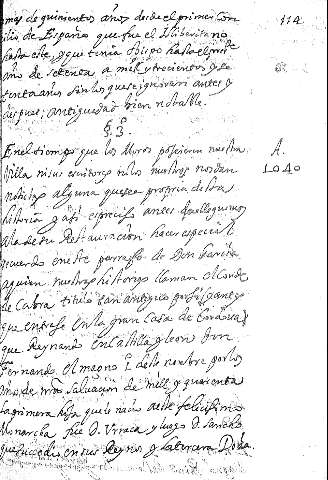 mas de quinientos años desde el primer Con 114
cilio de España que fue el Iliberitano
hasta este, y que tenia Obispo hasta el
año de setenta a mill y trecientos y se
tenta años sin los que se ignoran antes y
despues; antiguedad bien notable.
§ 3.
En el tiempo que los Moros poseieron nuestra A.
Villa ni sus escritores ni los nuestros nos dan 1040
noticia alguna que sea propria de esta
historia y assi es preciso antes que lleguemos
a la de su Restauración hacer especial
recuerdo en este parrafo de Don Garcia
a quien nuestras historias llaman el Conde
de Cabra titulo tan antiguo
que entrase en la gran Casa de Cordova
que Reynando en Castilla y Leon Don
Fernando el magno 1 de este nombre por los
años de nra Salvacion de mill y quarenta
la primera hija que le nacio a este felicissimo
Monarcha fue D. Urraca y luego D. Sancho
que sucedio en sus Reynos y la tercera Doña